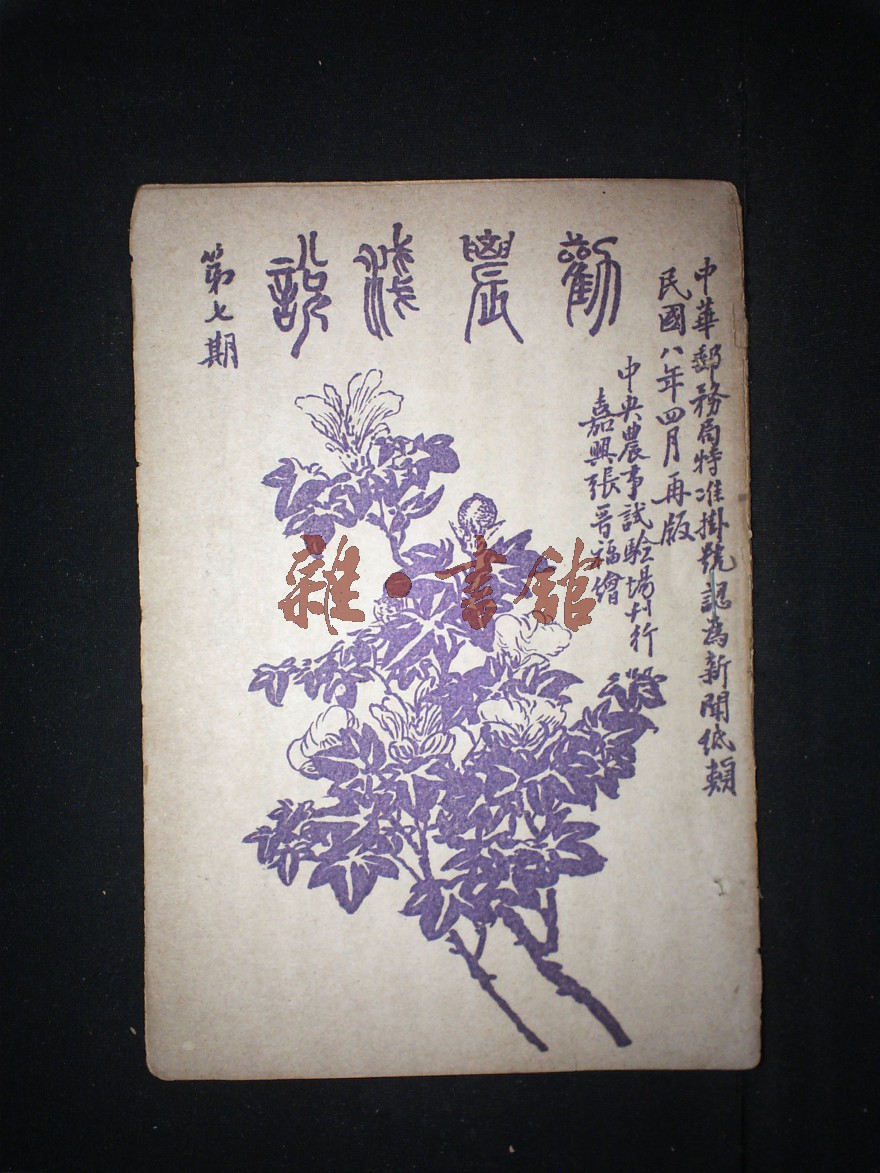 中華郵務局特准掛號認為新聞紙類
民國八年四月再版
勸農淺說
中央農事試驗場刋行
嘉興張晉福繪
第七期
雜·書館